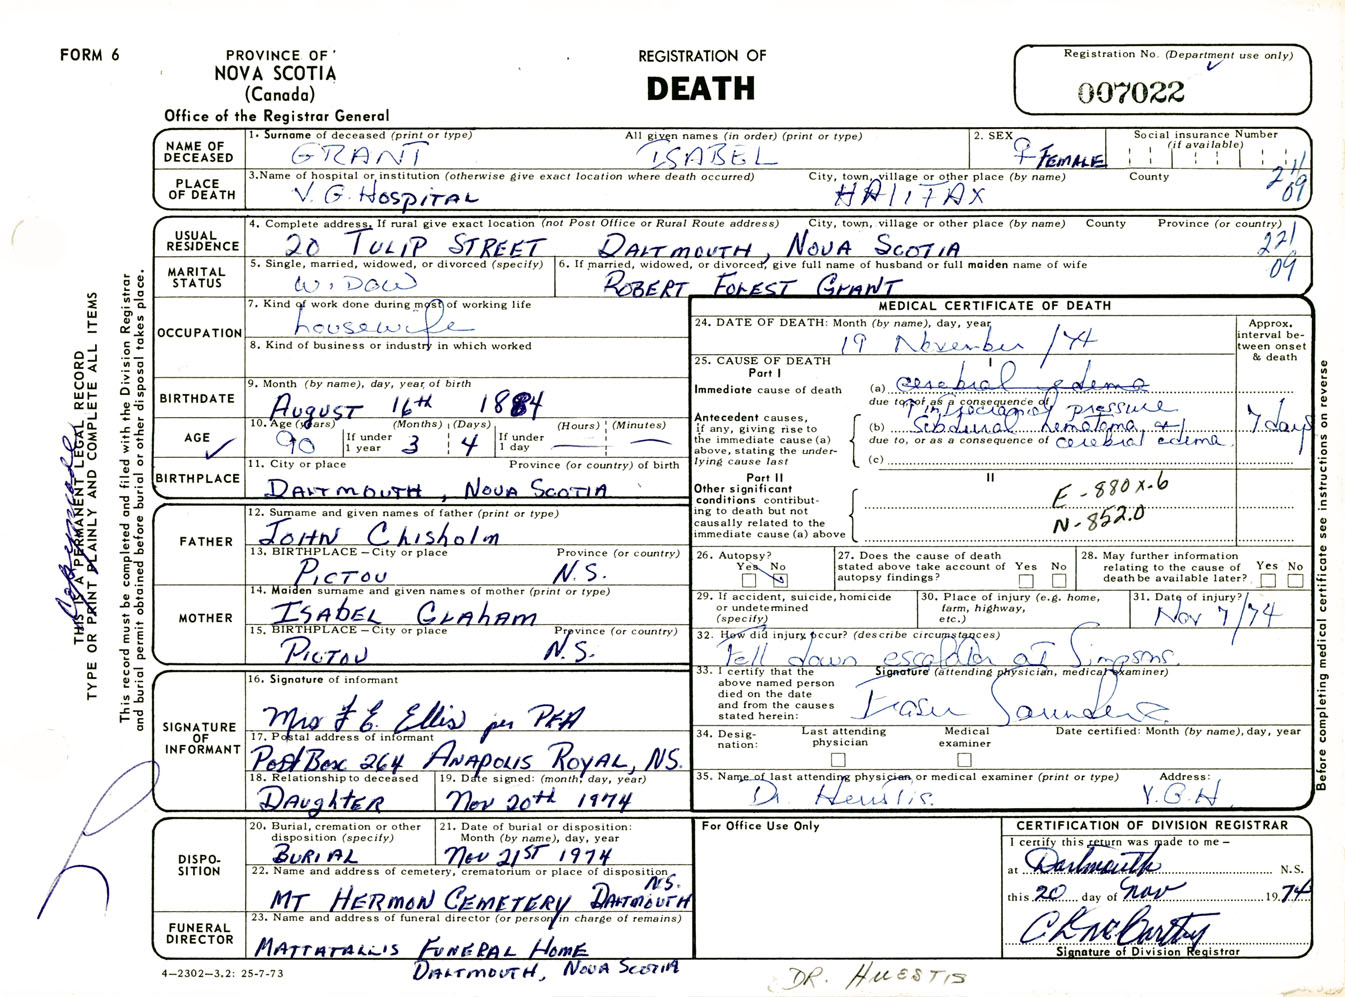 FORM 6
PROVINCE OF
NOVA SCOTIA
(Canada)
Office of the Registrar General
REGISTRATION OF
DEATH
Registration No. (Department use only)
007022
NAME OF DECEASED
1. Surname of deceased (print or type)
All given names (in order) (print or type)
GRANT ISABEL
2. SEX
♀ FEMALE
Social insurance Number
(if available)
PLACE OF DEATH
3. Name of hospital or institution (otherwise give exact location where death occurred)
City, town, village or other place (by name)
County
V. G. HOSPITAL HALIFAX
09
USUAL RESIDENCE
4. Complete address, If rural give exact location (not Post Office or Rural Route address)
City, town, village or other place (by name)
County
Province (or country)
20 TULIP STREET DARTMOUTH, NOVA SCOTIA
221
09
MARITAL STATUS
5. Single, married, widowed, or divorced (specify)
WIDOW
6. If married, widowed, or divorced, give full name of husband or full maiden name of wife
ROBERT FOREST GRANT
OCCUPATION
7. Kind of work done during most of working life
housewife
8. Kind of business or industry in which worked
BIRTHDATE
9. Month (by name), day, year of birth
AUGUST 16th 1884
AGE
10. Age (years)
90
If under 1 year
(Months) (Days)
3 4
If under 1 day
(Hours) (Minutes)
BIRTHPLACE
11. City or place
Province (or country) of birth
DARTMOUTH, NOVA SCOTIA
FATHER
12. Surname and given names of father (print or type)
JOHN CHISHOLM
13. BIRTHPLACE – City or place
Province (or country)
PICTOU N.S.
MOTHER
14. Maiden surname and given names of mother (print or type)
ISABEL GRAHAM
15. BIRTHPLACE – City or place
Province (or country)
PICTOU N.S.
SIGNATURE OF INFORMANT
16. Signature of informant
Mrs F E. Ellis per PFA
17. Postal address of informant
Post Box 264 ANAPOLIS ROYAL, NS.
18. Relationship to deceased
DAUGHTER
19. Date signed: (month, day, year)
Nov 20th 1974
DISPOSITION
20. Burial, cremation or other disposition (specify)
BURIAL
21. Date of burial or disposition:
Month (by name), day, year
Nov 21ST 1974
22. Name and address of cemetery, crematorium or place of disposition
MT HERMON CEMETERY DARTMOUTH N.S.
FUNERAL DIRECTOR
23. Name and address of funeral director (or person in charge of remains)
MATTATALLIS FUNERAL HOME
DARTMOUTH, NOVA SCOTIA
4–2302–3.2: 25-7-73
MEDICAL CERTIFICATE OF DEATH
24. DATE OF DEATH: Month (by name), day, year
19 November /74
Approx. interval between onset & death
25. CAUSE OF DEATH
Part I
I
Immediate cause of death
(a) cerebral edema
due to, or as a consequence of
↑ intracranial pressure
Antecedent causes, if any, giving rise to the immediate cause (a) above, stating the underlying cause last
(b) Subdural hematoma +
due to, or as a consequence of
cerebral edema
(c)
7 days
Part II
II
Other significant conditions contributing to death but not causally related to the immediate cause (a) above
E-880X-6
N-852.0
26. Autopsy?
Yes No
27. Does the cause of death stated above take account of autopsy findings?
Yes No
28. May further information relating to the cause of death be available later?
Yes No
29. If accident, suicide, homicide or undetermined (specify)
30. Place of injury (e.g. home, farm, highway, etc.)
31. Date of injury?
Nov 7/74
32. How did injury occur? (describe circumstances)
Fell down escalator at Simpsons.
33. I certify that the above named person died on the date and from the causes stated herein:
Signature (attending physician, medical examiner)
Fraser Saunders
34. Designation:
Last attending physician
Medical examiner
Date certified: Month (by name), day, year
35. Name of last attending physician or medical examiner (print or type)
Address:
Dr. Heustis. V.G.H.
For Office Use Only
CERTIFICATION OF DIVISION REGISTRAR
I certify this return was made to me –
at Dartmouth N.S.
this 20 day of Nov 1974
Signature of Division Registrar
DR. HUESTIS
THIS IS A PERMANENT LEGAL RECORD
TYPE OR PRINT PLAINLY AND COMPLETE ALL ITEMS
This record must be completed and filed with the Division Registrar
and burial permit obtained before burial or other disposal takes place.
Before completing medical certificate see instructions on reverse